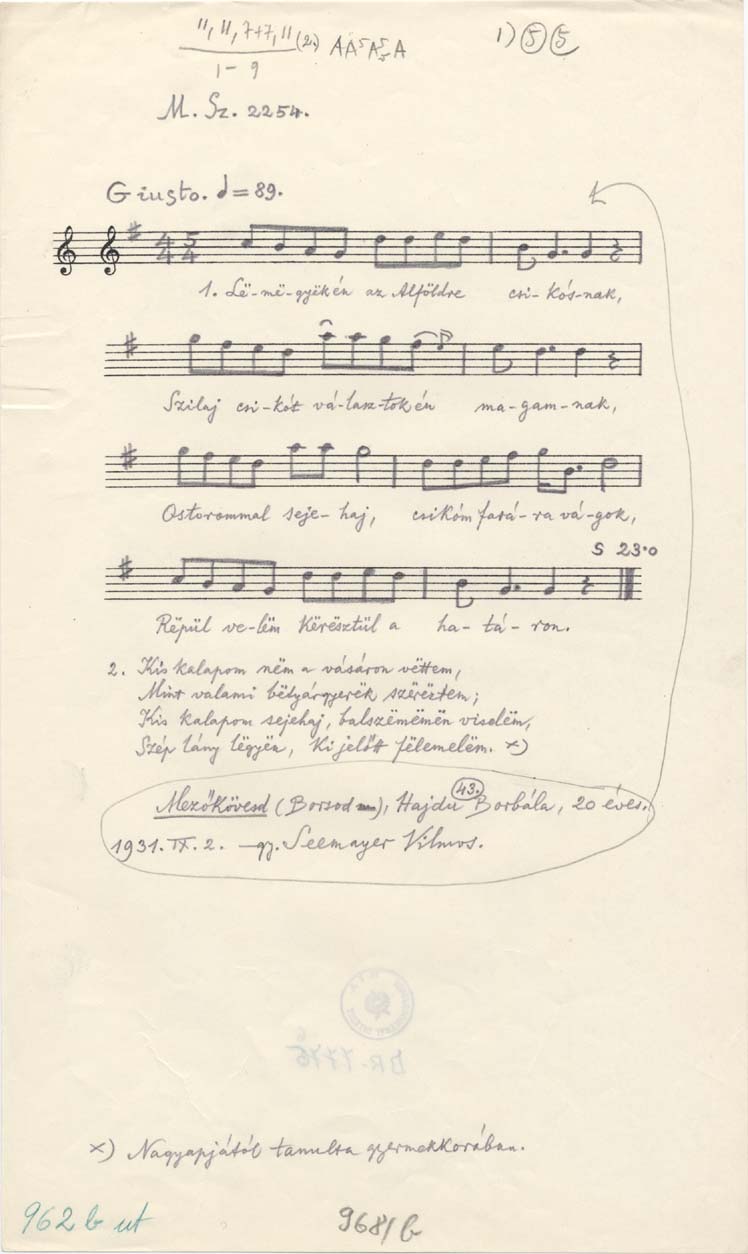 11, 11, 7+7, 11 (2.) AA⁵A⁵A 1) 5 5
1 - 9
M. Sz. 2254.
Giusto. ♩=89.
4 5
4 4
1. Lë-më-gyëkén az Alföldre csi-kós-nak,
Szilaj csi-kót vá-lasz-tokén ma-gam-nak,
Ostorommal seje-haj, csikóm fará-ra vá-gok,
S 23.0
Rëpül ve-lëm kërësztül a ha-tá-ron.
2. Kis kalapom nëm a vásáron vëttem,
Mint valami bëtyárgyerëk szërëztem;
Kis kalapom sejehaj, balszëmëmën viselëm,
Szép lány lëgyën, ki jelőtt fëlemelëm. x)
Mezőkövesd (Borsod), Hajdu 43. Borbála, 20 éves.
1931. IX. 2. gy. Seemayer Vilmos.
BR-7775
x) Nagyapjától tanulta gyermekkorában.
962 b ut 968/b